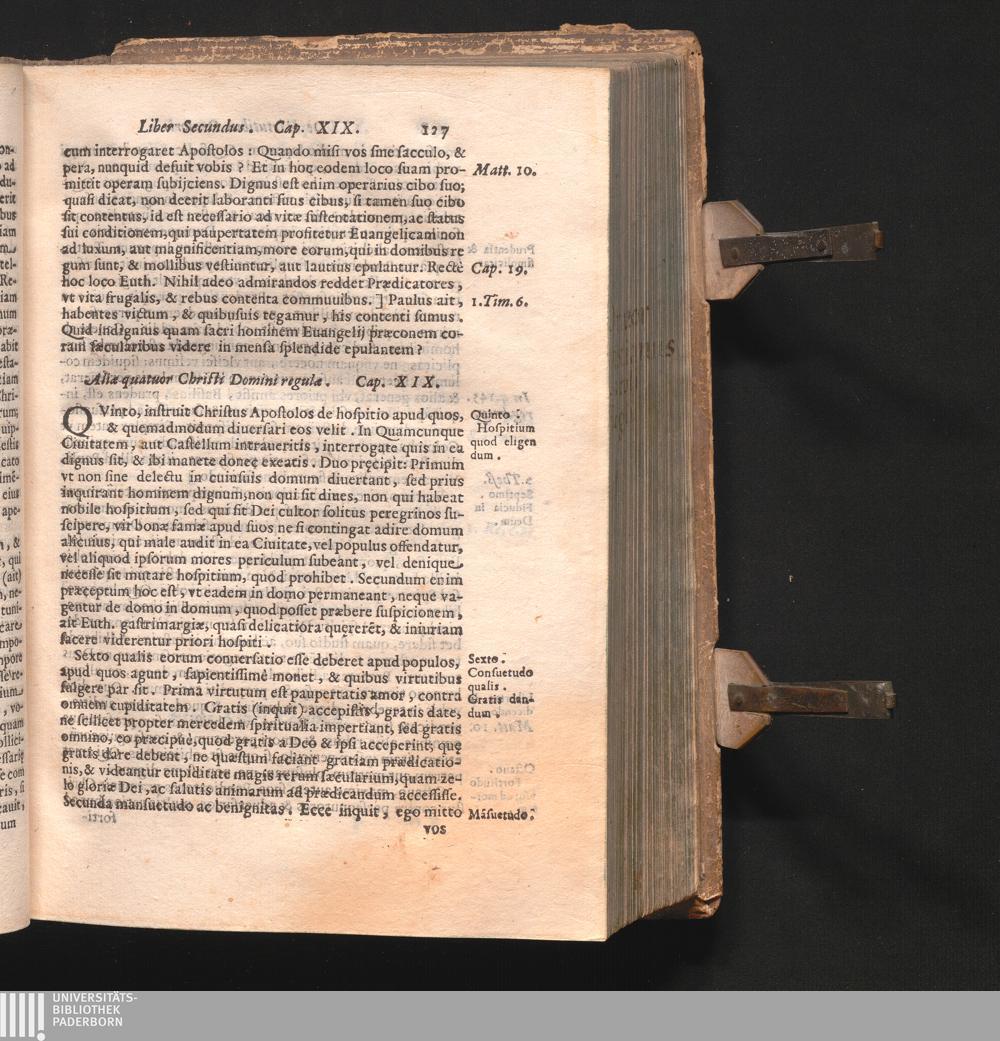 Liber Secundus. Cap. XIX. 127
cum interrogaret Apoſtolos : Quando miſi vos ſine ſacculo, &
pera, nunquid defuit vobis ? Et in hoc eodem loco ſuam pro-
Matt. 10.
mittit operam ſubijciens. Dignus eſt enim operarius cibo ſuo;
quaſi dicat, non deerit laboranti ſuus cibus, ſi tamen ſuo cibo
ſit contentus, id eſt neceſſario ad vitæ ſuſtentationem, ac ſtatus
ſui conditionem, qui paupertatem profitetur Euangelicam non
ad luxum, aut magnificentiam, more eorum, qui in domibus re
gum ſunt, & mollibus veſtiuntur, aut lautius epulantur. Rectè
Cap. 19.
hoc loco Euth. Nihil adeo admirandos reddet Prædicatores,
vt vita frugalis, & rebus contenta commuuibus. ] Paulus ait,
1. Tim. 6.
habentes victum, & quibuſuis tegamur, his contenti ſumus.
Quid indignius quam ſacri hominem Euangelij præconem co-
ram ſæcularibus videre in menſa ſplendide epulantem ?
Aliæ quatuor Chriſti Domini regulæ. Cap. XIX.
QVinto, inſtruit Chriſtus Apoſtolos de hoſpitio apud quos,
& quemadmodum diuerſari eos velit. In Quamcunque
Ciuitatem, aut Caſtellum intraueritis, interrogate quis in ea
dignus ſit, & ibi manete donec exeatis. Duo pręcipit: Primum
Quinto.
Hoſpitium
quod eligen
dum.
vt non ſine delectu in cuiuſuis domum diuertant, ſed prius
inquirant hominem dignum, non qui ſit diues, non qui habeat
nobile hoſpitium, ſed qui ſit Dei cultor ſolitus peregrinos ſu-
ſcipere, vir bonæ famæ apud ſuos ne ſi contingat adire domum
alicuius, qui male audit in ea Ciuitate, vel populus offendatur,
vel aliquod ipſorum mores periculum ſubeant, vel denique
neceſſe ſit mutare hoſpitium, quod prohibet. Secundum enim
præceptum hoc eſt, vt eadem in domo permaneant, neque va-
gentur de domo in domum, quod poſſet præbere ſuſpicionem,
ait Euth. gaſtrimargiæ, quaſi delicatiora quęrerẽt, & iniuriam
facere viderentur priori hoſpiti.
Sexto qualis eorum conuerſatio eſſe deberet apud populos,
apud quos agunt, ſapientiſſimè monet, & quibus virtutibus
fulgere par ſit. Prima virtutum eſt paupertatis amor, contra
omnem cupiditatem. Gratis (inquit) accepiſtis, gratis date,
Sexto.
Conſuetudo
qualis.
Gratis dan-
dum.
ne ſcilicet propter mercedem ſpiritualia impertiant, ſed gratis
omnino, eo præcipuè, quod gratis a Deo & ipſi acceperint, quę
gratis dare debent, ne quæſtum faciant gratiam prædicatio-
nis, & videantur cupiditate magis rerum ſæcularium, quam ze-
lo gloriæ Dei, ac ſalutis animarum ad prædicandum acceſſiſſe.
Secunda manſuetudo ac benignitas. Ecce inquit, ego mitto
Māſuetudo.
vos
UNIVERSITÄTS-
BIBLIOTHEK
PADERBORN